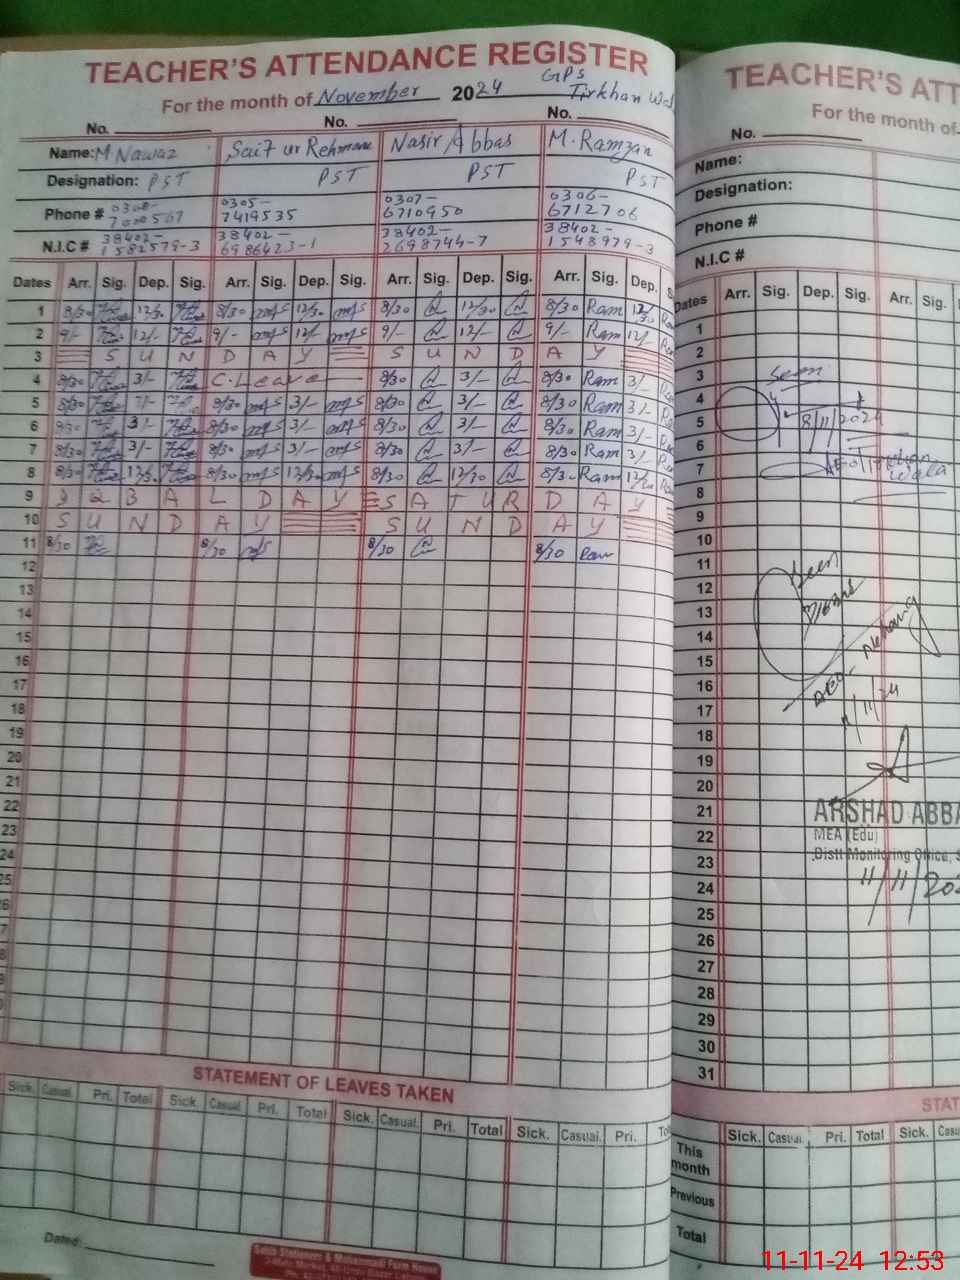 TEACHER'S ATTENDANCE REGISTER
For the month of November 2024 GPS Tirkhan
No. No. No.
Name: M Nawaz Saif ur Rehman Nasir Abbas M. Ramzan
Designation: PST PST PST PST
Phone # 0305- 0307- 0306-
7419535 6710950 6712706
N.I.C # 38402- 38402- 38402- 38402-
1582579-3 6986423-1 2698744-7 1548979-3
Dates Arr. Sig. Dep. Sig. Arr. Sig. Dep. Sig. Arr. Sig. Dep. Sig. Arr. Sig. Dep.
1 8/30 12/30 8/30 12/30 8/30 12/30 8/30 Ram 12/30
2 9/- 12/- 9/- 12/- 9/- 12/- 9/- Ram 12/-
3 S U N D A Y S U N D A Y
4 8/30 3/- C. Leave 8/30 3/- 8/30 Ram 3/-
5 8/30 8/30 3/- 8/30 3/- 8/30 Ram 3/-
6 8/30 3/- 8/30 3/- 8/30 3/- 8/30 Ram 3/-
7 8/30 3/- 8/30 3/- 8/30 3/- 8/30 Ram 3/-
8 8/30 12/30 8/30 12/30 8/30 12/30 8/30 Ram 12/30
9 I Q B A L D A Y S A T U R D A Y
10 S U N D A Y S U N D A Y
11 8/30 8/30 8/30 8/30 Ram
12
13
14
15
16
17
18
19
20
21
22
23
24
STATEMENT OF LEAVES TAKEN
Sick. Casual. Pri. Total Sick. Casual. Pri. Total Sick. Casual. Pri. Total Sick. Casual. Pri.
Dated:
Sahib Stationers & Mohammadi Form House
TEACHER'S ATT
For the month of
No.
Name:
Designation:
Phone #
N.I.C #
Dates Arr. Sig. Dep. Sig. Arr. Sig.
1
2
3 Seen
4
5 8/11/2024
6
7
8
9
10
11 Seen
12
13
14
15
16
17 11/11/24
18
19
20
21 ARSHAD ABBA
22 MEA (Edu)
23 Distt Monitoring Office,
24 11/11/202
25
26
27
28
29
30
31
STAT
Sick. Casual. Pri. Total Sick.
This month
Previous
Total
11-11-24 12:53